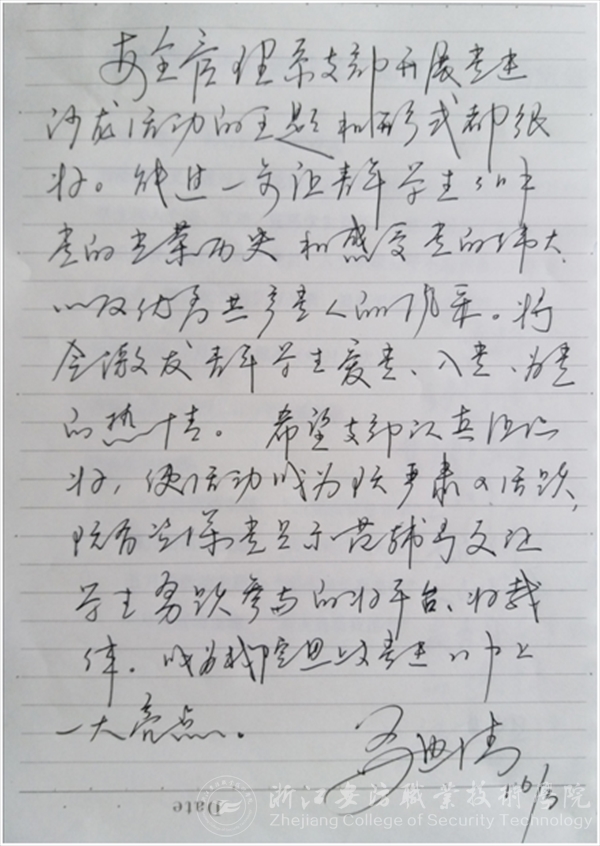 安全管理系支部开展党建
沙龙活动的主题和形式都很
好。能进一步让青年学生心中
党的光荣历史和感受党的伟大、
以及优秀共产党人的风采。将
会激发青年学生爱党、入党、为党
的热情。希望支部认真组织
好，使活动成为既严肃又活跃，
既有资深党员示范辅导又让
学生踊跃参与的好平台、好载
体。成为我院思政党建工作上
一大亮点。
16/3
Date
浙江安防職業技術學院
Zhejiang College of Security Technology